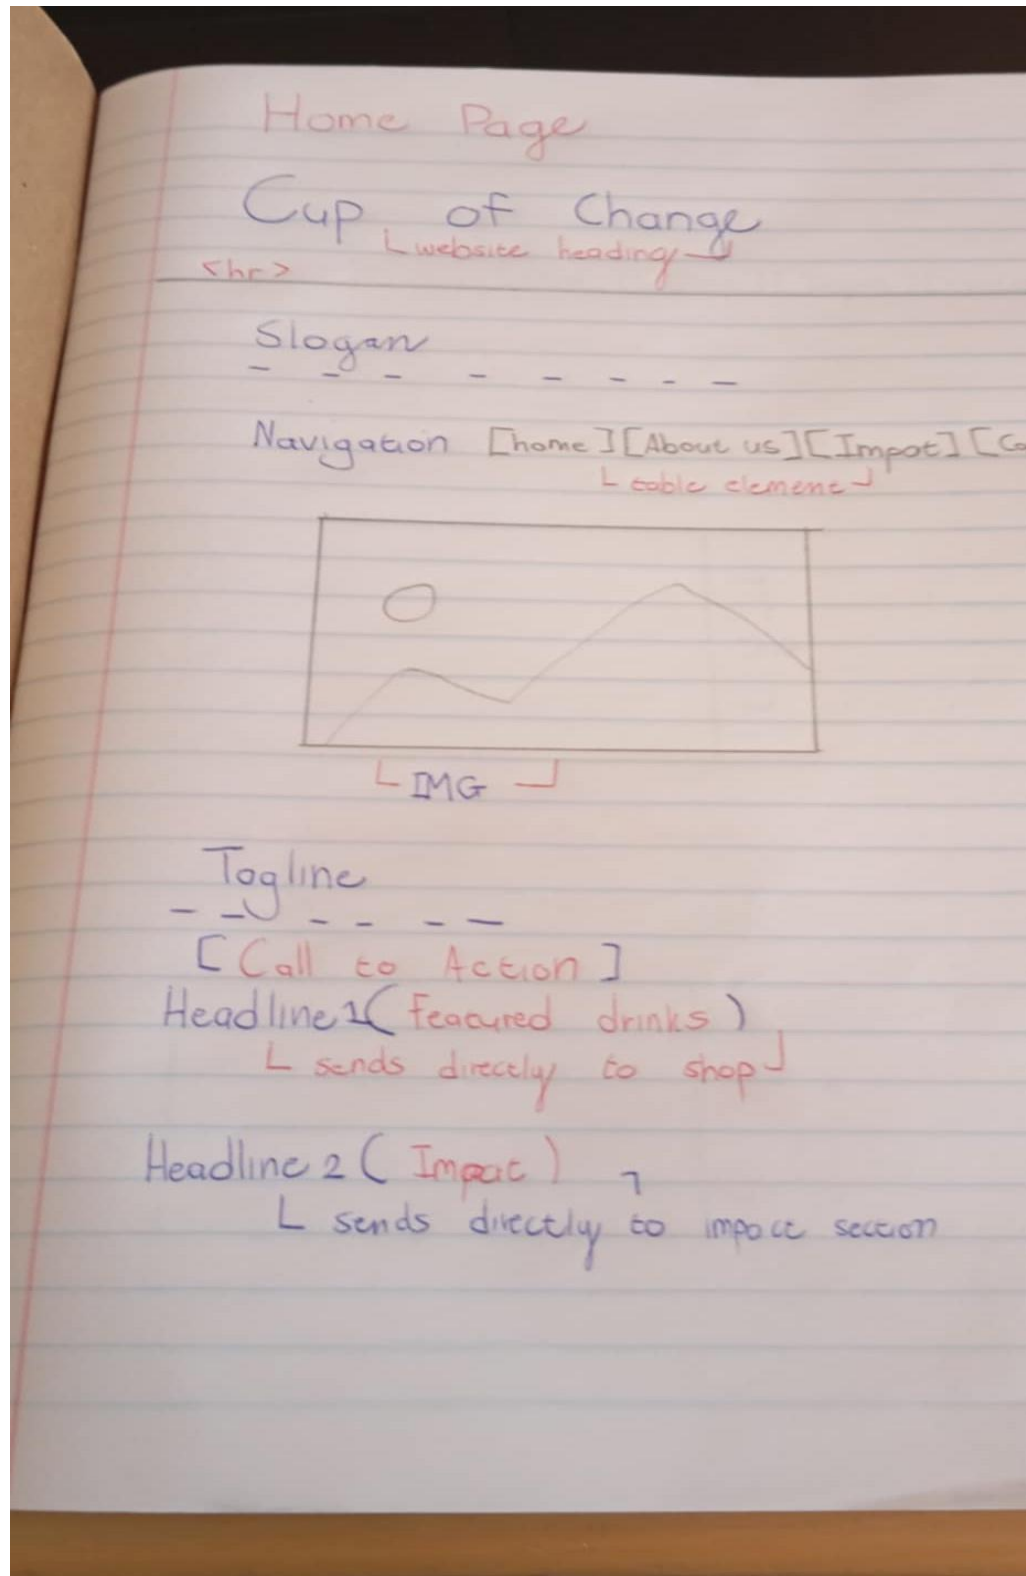 Home Page
Cup of Change
website heading
<hr>
Slogan
Navigation [home] [About us] [Impat] [Co
table element
IMG
Tagline
[Call to Action]
Headline 1 (featured drinks)
sends directly to shop
Headline 2 (Impact)
sends directly to impact section